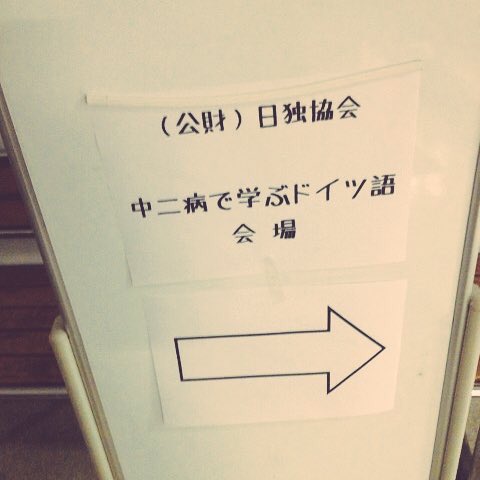 （公財）日独協会
中二病で学ぶドイツ語
会 場